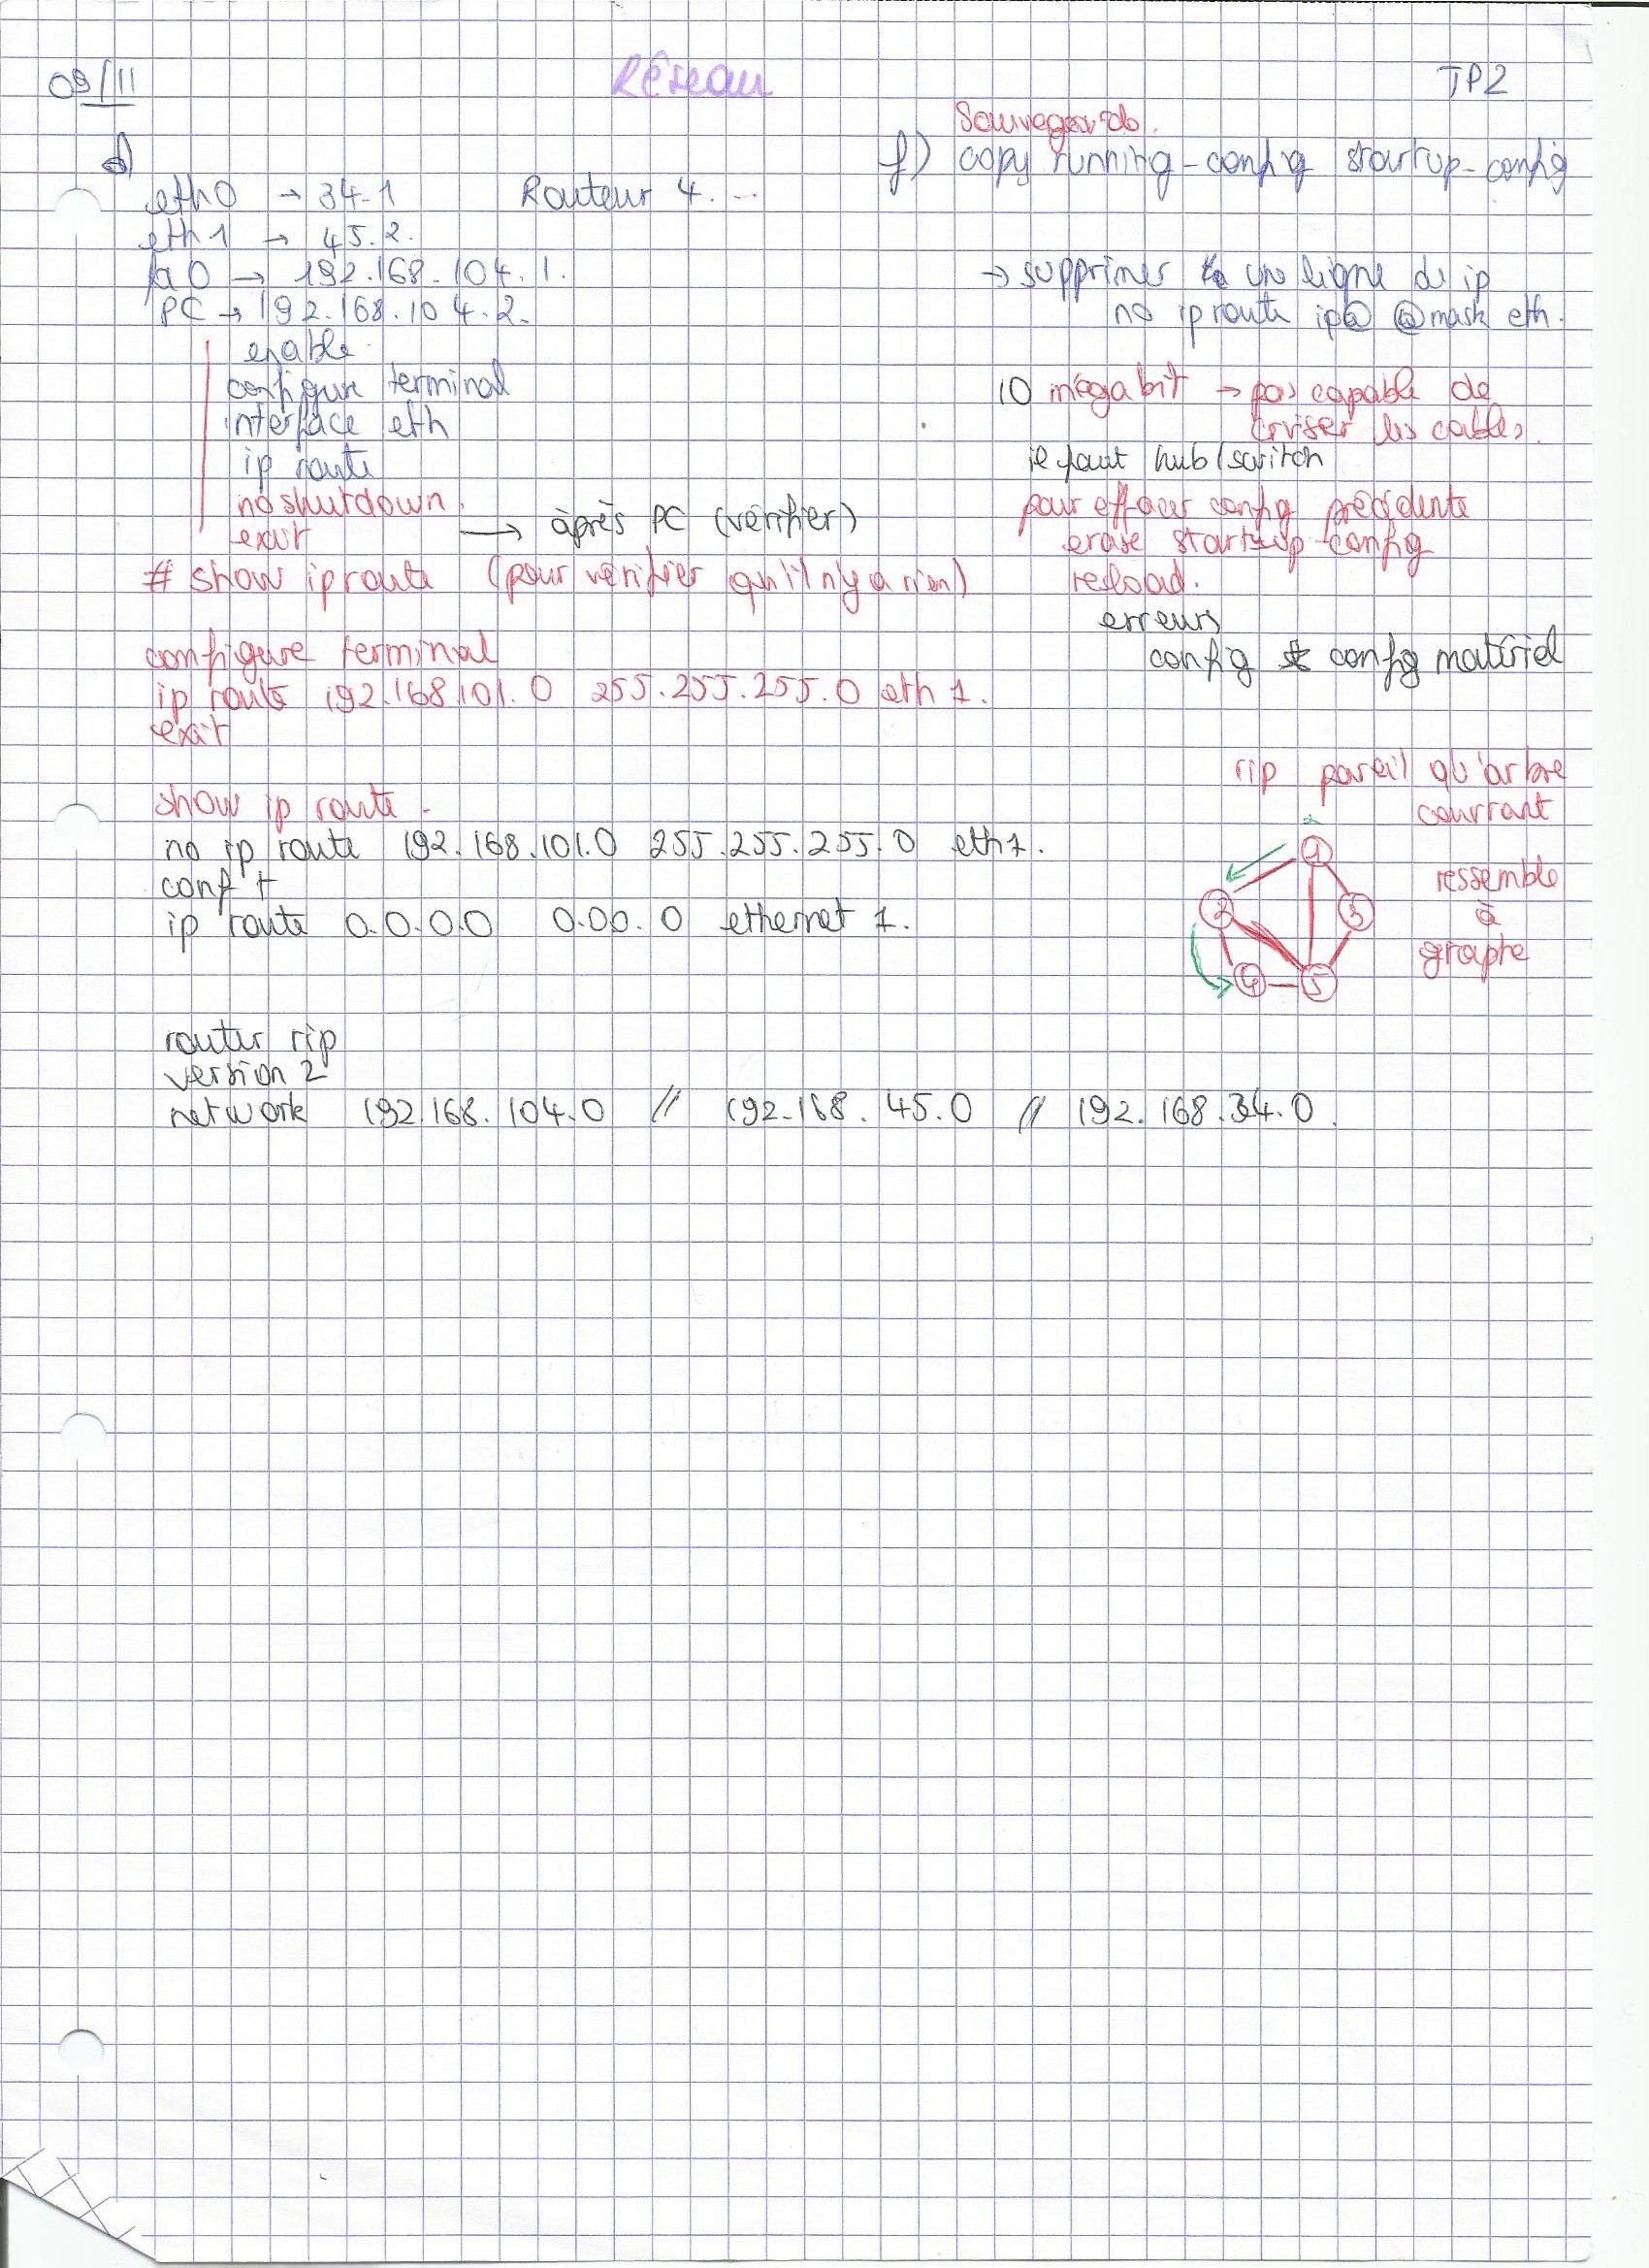 09/11
Réseau
TP2
d)
eth0 → 34.1
Routeur 4. ...
eth1 → 45.2.
fa0 → 192.168.104.1.
PC → 192.168.104.2.
enable
configure terminal
interface eth
ip route
no shutdown.
exit
→ après PC (vérifier)
# show ip route (pour vérifier qu'il n'y a rien)
configure terminal
ip route 192.168.101.0 255.255.255.0 eth 1.
exit
show ip route.
no ip route 192.168.101.0 255.255.255.0 eth1.
conf t
ip route 0.0.0.0 0.00.0 ethernet 1.
router rip
version 2
network 192.168.104.0 // 192.168.45.0 // 192.168.34.0.
Sauvegarde.
f) copy running-config startup-config
→ supprimer une ligne de ip
no ip route ip@ @mask eth.
10 mégabit → pas capable de
criser les cables.
il faut hub/switch
pour effacer config précédente
erase startup-config
reload.
erreurs
config config matériel
rip pareil qu'arbre
courrant
ressemble
à
graphe
1
2
3
4
5